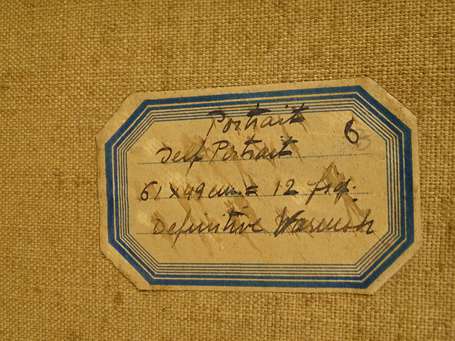 Portrait 6
Self Portrait
61 x 49 cm = 12 fig.
Definitive Varnish